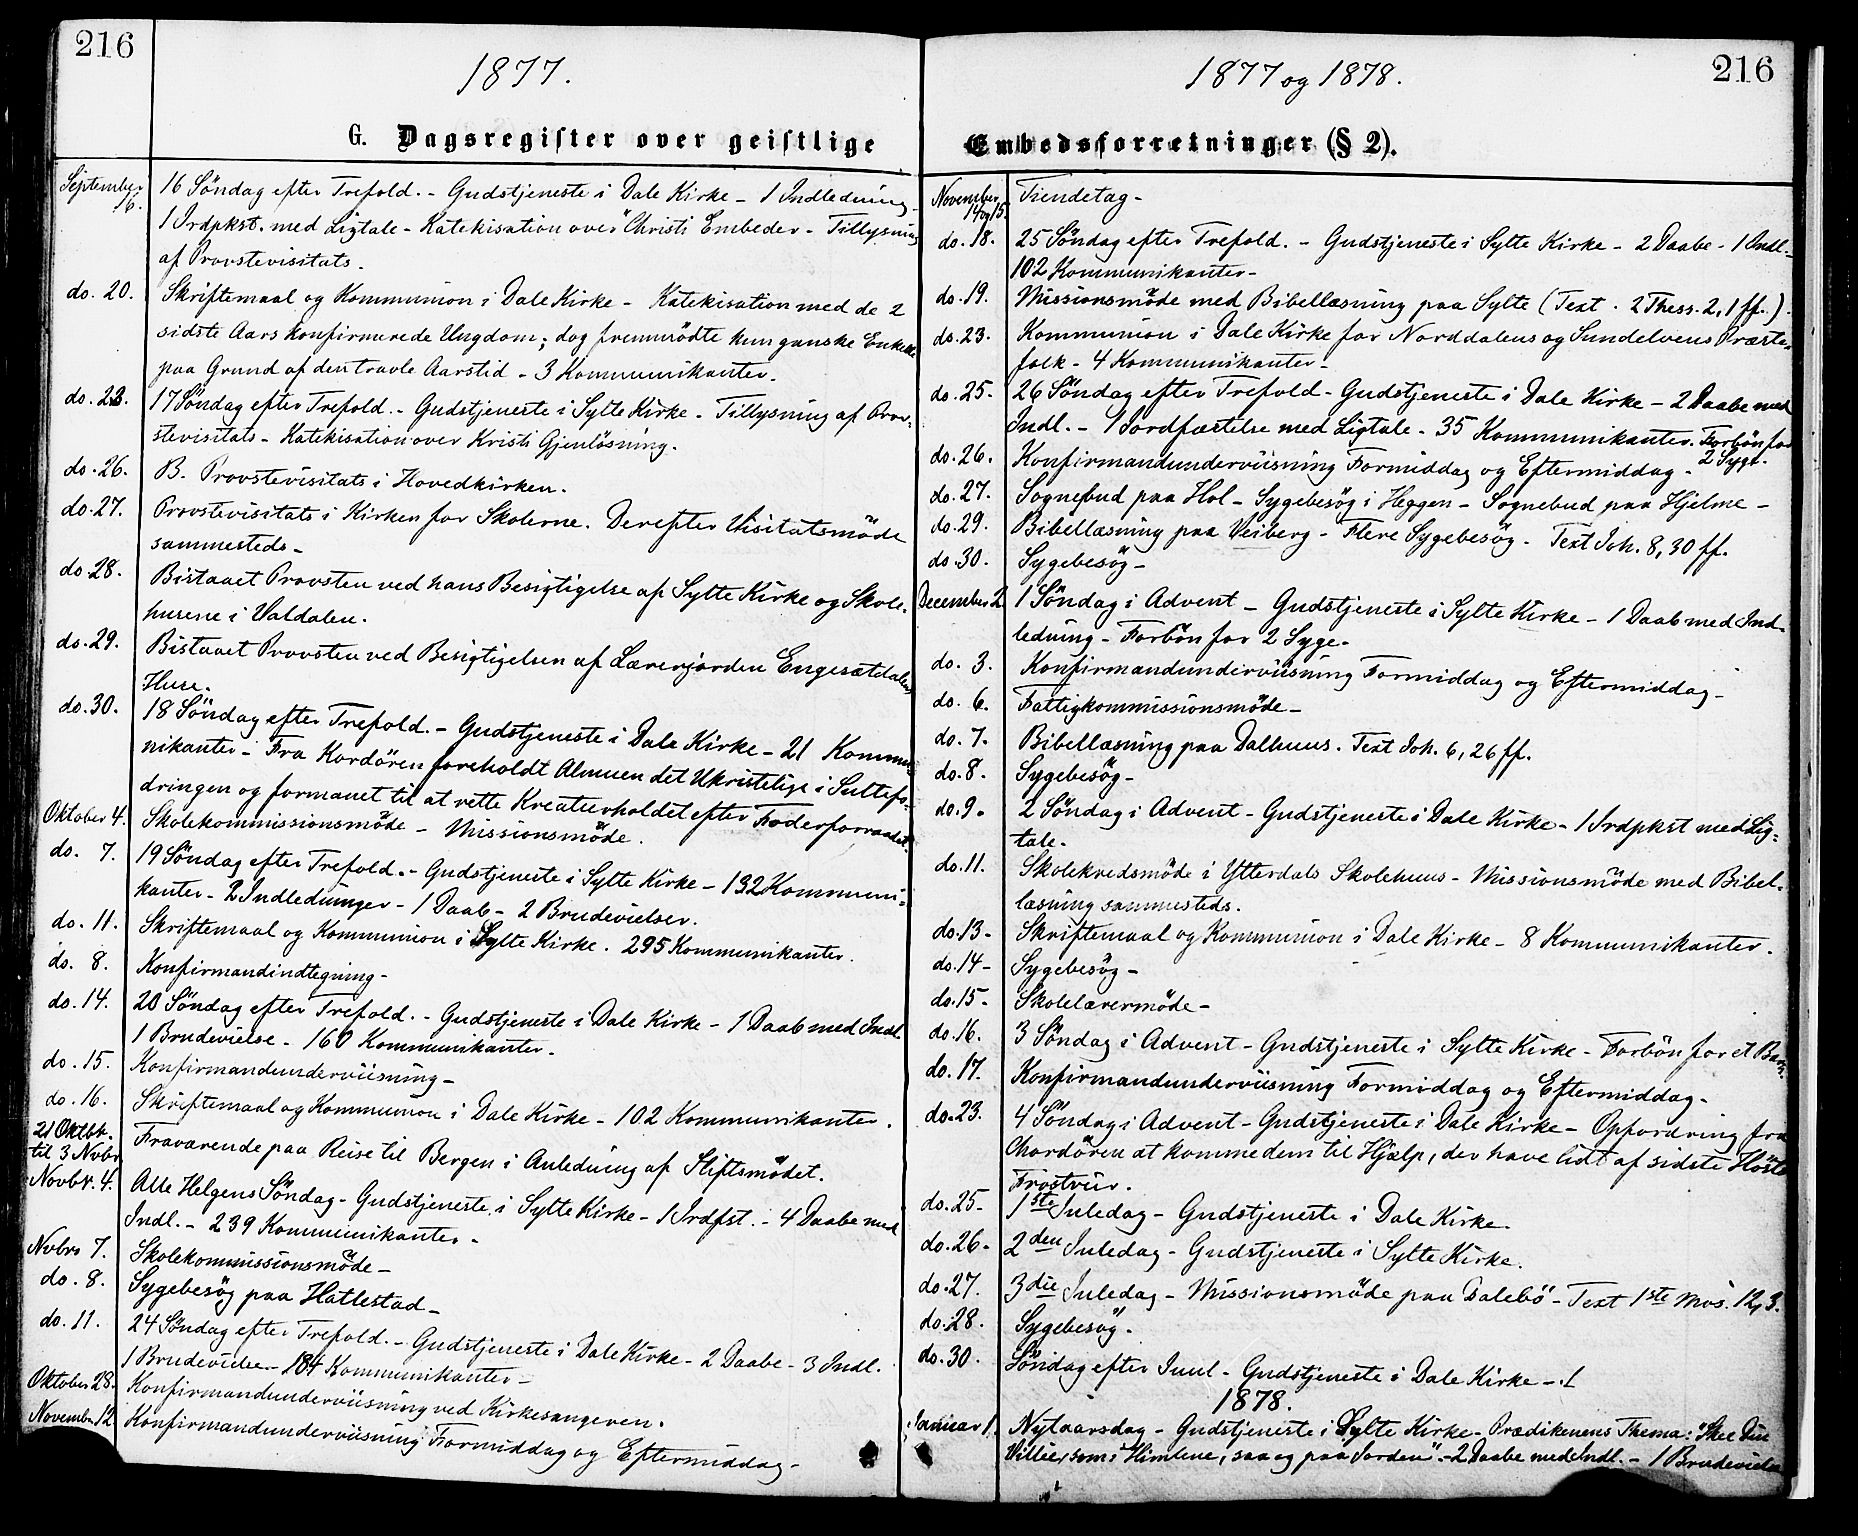 216
1877.
G. Dagsregister over geistlige
September 16. 16 Söndag efter Trefold. - Gudstjeneste i Dale Kirke - 1 Indledning -
1 Irdpkst. med Ligtale - Katekisation over Christi Embeder - Tillysning
af Provstevisitats.
do. 20. Skriftemaal og Kommunion i Dale Kirke - Katekisation med de 2
sidste Aars konfirmerede Ungdom; dog fremmödte kun ganske Enkelte
paa Grund af den travle Aarstid - 3 Kommunikanter.
do. 23. 17 Söndag efter Trefold. - Gudstjeneste i Sylte Kirke - Tillysning af Prov-
stevisitats - Katekisation over Kristi Gjenlösning.
do. 26. B. Provstevisitats i Hovedkirken.
do. 27. Provstevisitats i Kirken for Skolerne. Derefter Visitatsmöde
sammesteds -
do. 28. Bistaaet Provsten ved hans Besigtigelse af Sylte Kirke og Skole-
husene i Valdalen.
do. 29. Bistaaet Provsten ved Besigtigelsen af Lærerjorden Engesætdalens
Huse.
do. 30. 18 Söndag efter Trefold. - Gudstjeneste i Dale Kirke - 21 Kommu-
nikanter - Fra Kordören foreholdt Almuen det Ukristelige i Sultefo-
dringen og formanet til at rette Kreaturholdet efter Foderforraadet.
Oktober 4. Skolekommissionsmöde - Missionsmöde.
do. 7. 19 Söndag efter Trefold. - Gudstjeneste i Sylte Kirke - 132 Kommuni-
kanter - 2 Indledninger - 1 Daab - 2 Brudevielser.
do. 11. Skriftemaal og Kommunion i Sylte Kirke. 295 Kommunikanter.
do. 8. Konfirmandindtegning -
do. 14. 20 Söndag efter Trefold. - Gudstjeneste i Dale Kirke - 1 Daab med Indl.
1 Brudevielse - 160 Kommunikanter -
do. 15. Konfirmandunderviisning -
do. 16. Skriftemaal og Kommunion i Dale Kirke - 102 Kommunikanter.
21 Oktbr. til 3 Novbr. Fraværende paa Reise til Bergen i Anledning af Stiftsmödet.
Novbr. 4. Alle Helgens Söndag - Gudstjeneste i Sylte Kirke - 1 Irdfst. - 4 Daabe med
Indl. - 239 Kommunikanter -
Novbr 7. Skolekommissionsmöde -
do. 8. Sygebesög paa Hatlestad -
do. 11. 24 Söndag efter Trefold. - Gudstjeneste i Dale Kirke - 2 Daabe - 3 Indl.
1 Brudevielse - 184 Kommunikanter -
Oktober 28. Konfirmandunderviisning ved Kirkesangeren.
November 12 Konfirmandunderviisning Formiddag og Eftermiddag -
216
1877 og 1878.
Embedsforretninger (§ 2).
November 14 og 15. Tiendetag -
do. 18. 25 Söndag efter Trefold. - Gudstjeneste i Sylte Kirke - 2 Daabe - 1 Indl. -
102 Kommunikanter -
do. 19. Missionsmöde med Bibellæsning paa Sylte (Text. 2 Thess. 2, 1 ff.).
do. 23. Kommunion i Dale Kirke for Norddalens og Sundelvens Præste-
folk - 4 Kommunikanter -
do. 25. 26 Söndag efter Trefold - Gudstjeneste i Dale Kirke - 2 Daabe med
Indl. - 1 Jordfæstelse med Ligtale - 35 Kommunikanter. Forbön for
2 Syge.
do. 26. Konfirmandunderviisning Formiddag og Eftermiddag -
do. 27. Sognebud paa Hol - Sygebesög i Heggen - Sognebud paa Hjelme -
do. 29. Bibellæsning paa Veiberg - Flere Sygebesög - Text Joh. 8, 30 ff.
do. 30. Sygebesög -
December 2 1 Söndag i Advent - Gudstjeneste i Sylte Kirke - 1 Daab med Ind-
ledning - Forbön for 2 Syge.
do. 3. Konfirmandunderviisning Formiddag og Eftermiddag -
do. 6. Fattigkommissionsmöde -
do. 7. Bibellæsning paa Dalhuus. Text Joh. 6, 26 ff.
do. 8. Sygebesög -
do. 9. 2 Söndag i Advent - Gudstjeneste i Dale Kirke - 1 Irdpkst med Lig-
tale.
do. 11. Skolekredsmöde i Ytterdals Skolehuus - Missionsmöde med Bibel-
læsning sammesteds.
do. 13. Skriftemaal og Kommunion i Dale Kirke - 8 Kommunikanter.
do. 14 - Sygebesög -
do. 15 - Skolelærermöde -
do. 16. 3 Söndag i Advent - Gudstjeneste i Sylte Kirke - Forbön for et Barn.
do. 17. Konfirmandunderviisning Formiddag og Eftermiddag -
do. 23. 4 Söndag i Advent - Gudstjeneste i Dale Kirke - Opfordring fra
Chordören at komme dem til Hjælp, der have lidt af sidste Höstes
Frostviir.
do. 25 - 1ste Juledag - Gudstjeneste i Dale Kirke.
do. 26 - 2den Juledag - Gudstjeneste i Sylte Kirke.
do. 27. 3die Juledag - Missionsmöde paa Dalebö - Text 1ste Mos. 12, 3.
do. 28. Sygebesög -
do. 30. Söndag efter Juul - Gudstjeneste i Dale Kirke -
1878.
Januar 1. Nytaarsdag - Gudstjeneste i Sylte Kirke - Prædikenens Thema: "Skee Din
Villie, som i Himlene, saa og paa Jorden". - 2 Daabe med Indl. - 1 Brudevielse